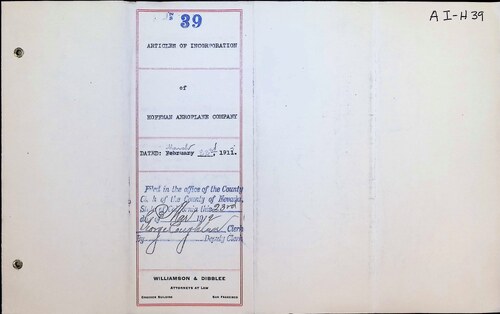 39
A I-H 39
ARTICLES OF INCORPORATION
of
HOFFMAN AEROPLANE COMPANY
DATED: February 1911.
Filed in the office of the County
Clerk of the County of Nevada,
State of California this 23rd
day of Mar
Clerk
By Deputy Clerk
WILLIAMSON & DIBBLEE
ATTORNEYS AT LAW
BUILDING SAN FRANCISCO